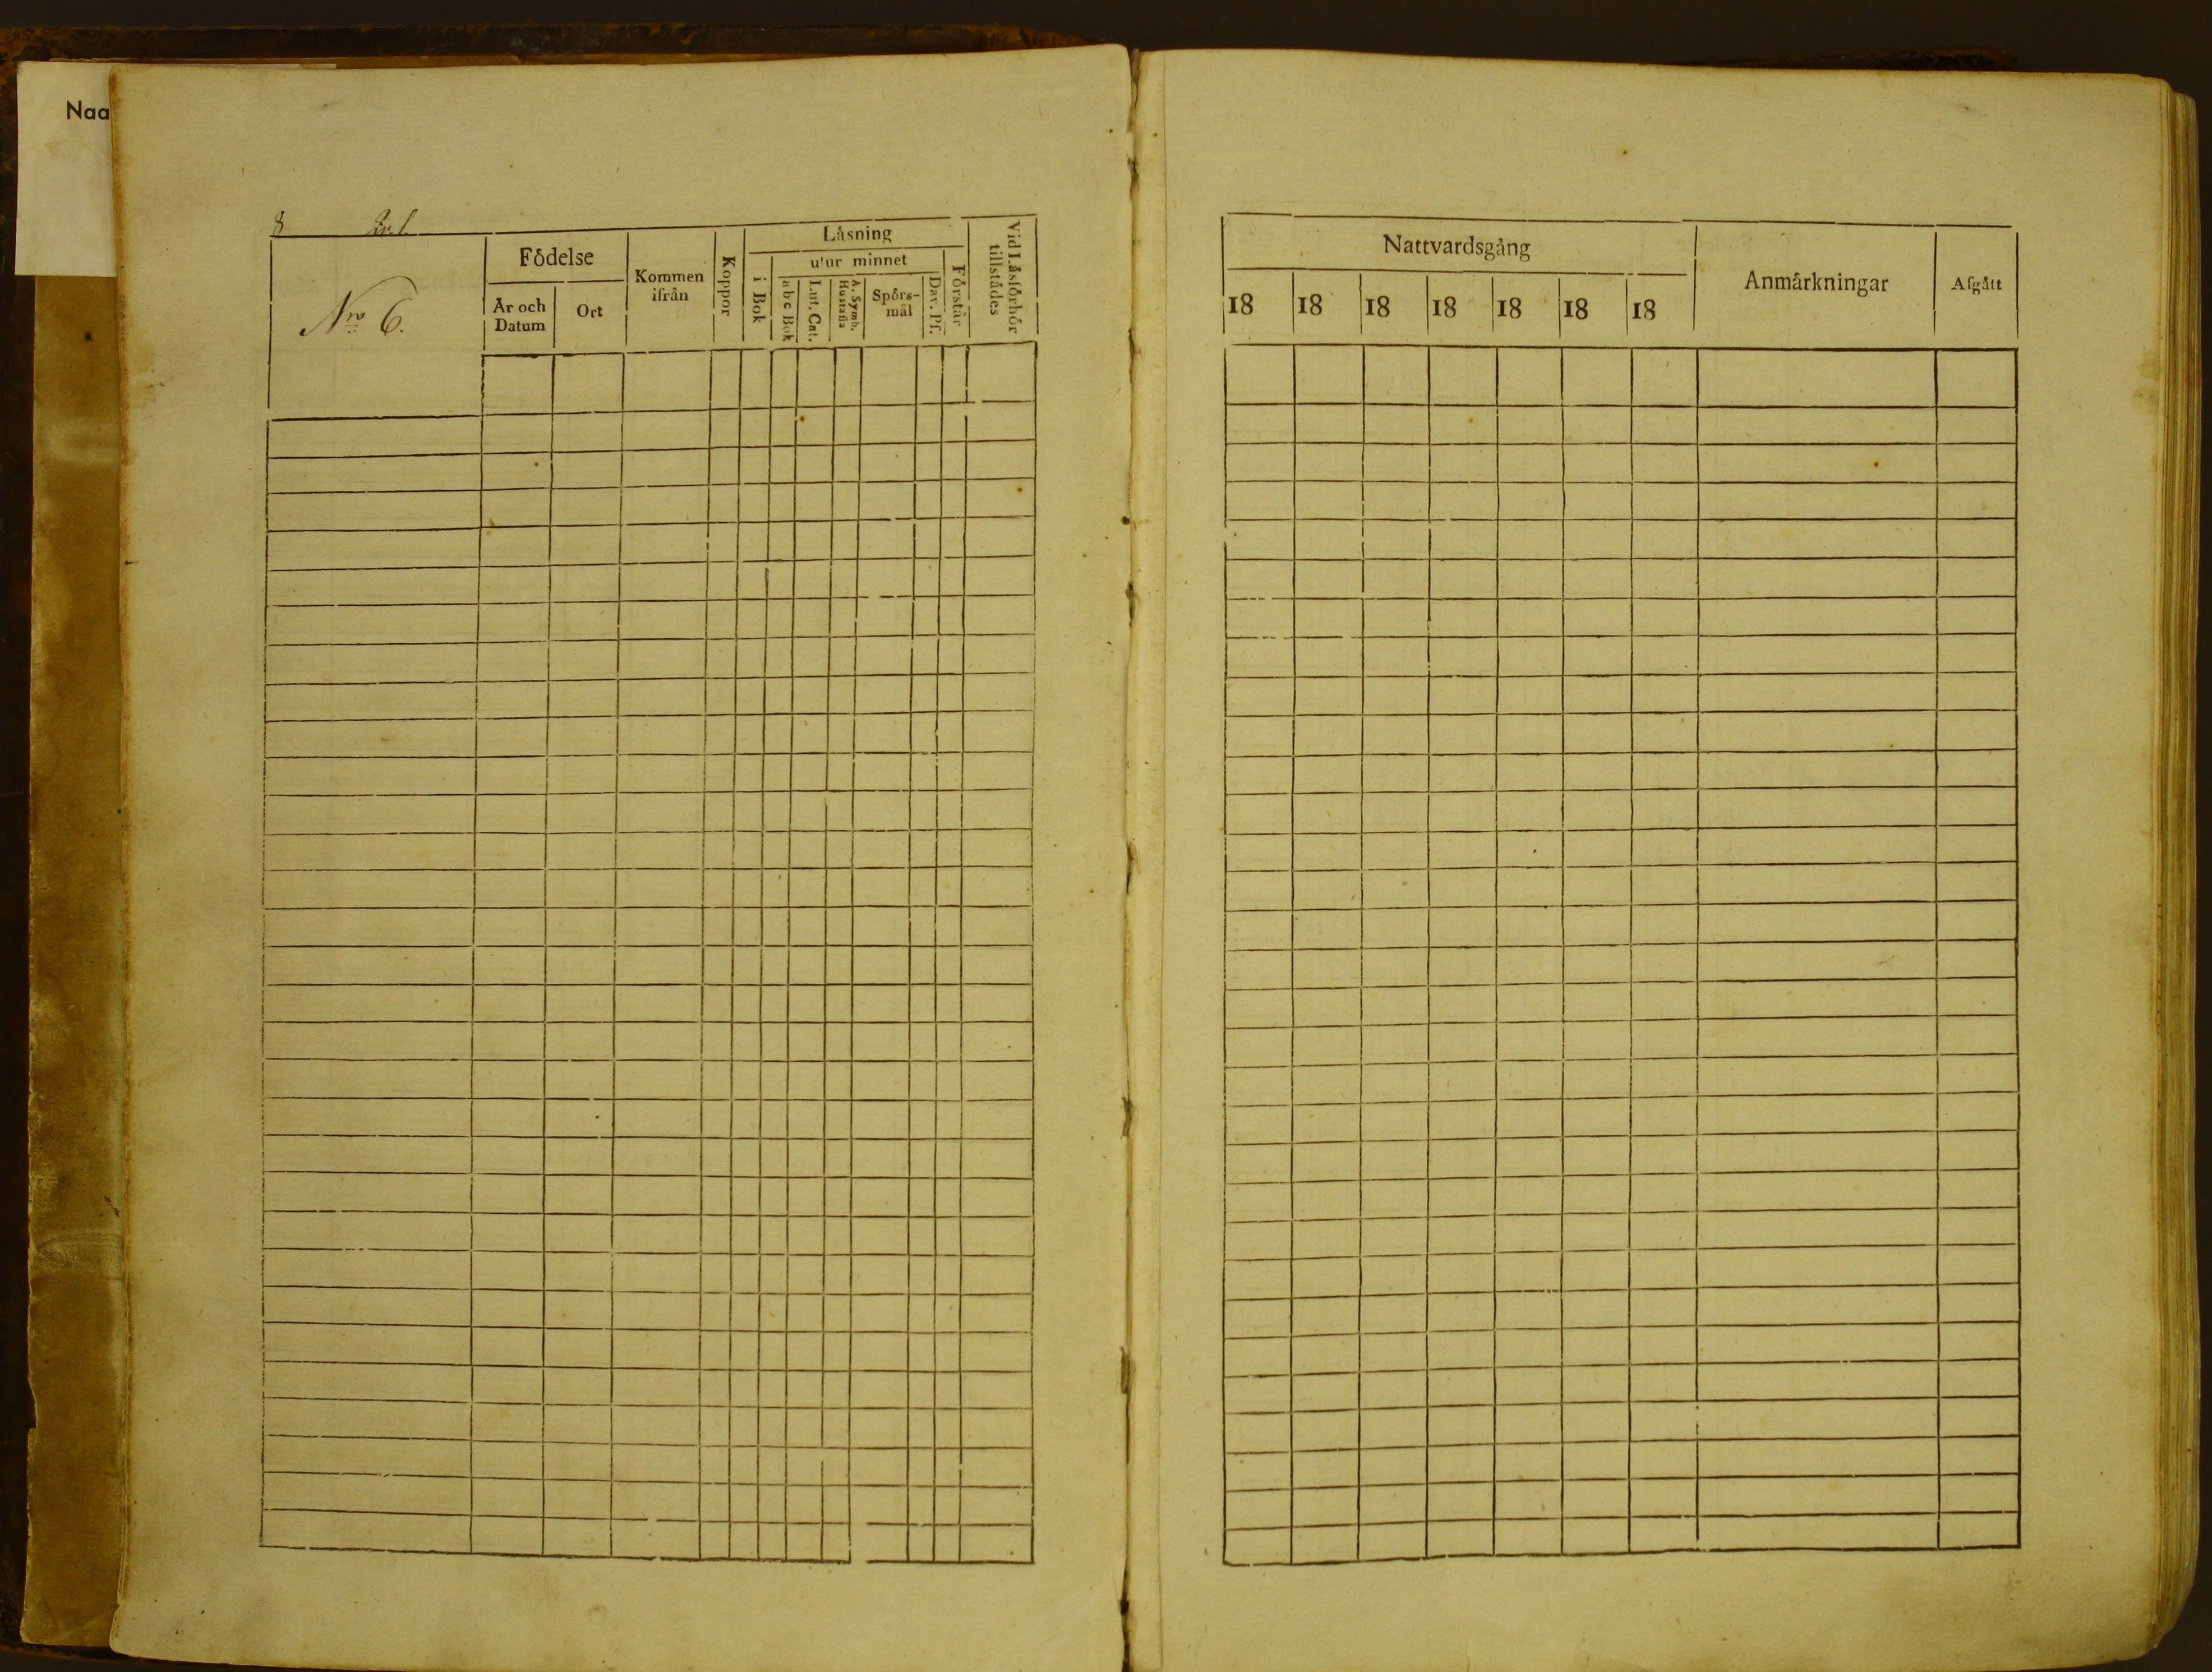 Naa
8
Nro 6.
Födelse
År och Datum
Ort
Kommen ifrån
Koppor
Läsning
i Bok
utur minnet
abc Bok
Lut. Cat.
A. Symb. Hustafla
Spörs-
mål
Dav. Ps.
Förstår
Vid Läsförhör tillstädes
Nattvardsgång
18 18 18 18 18 18 18
Anmärkningar
Afgått